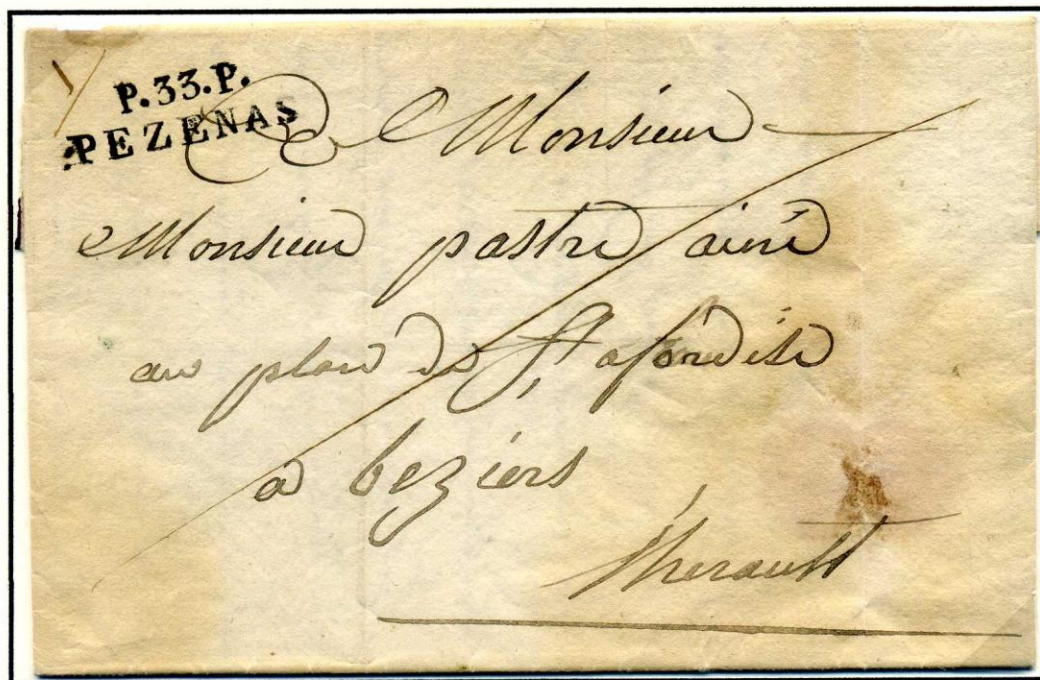 P.33.P.
PEZENAS
Monsieur
Monsieur pastre ainé
au plan de St afrodise
a beziers
herault